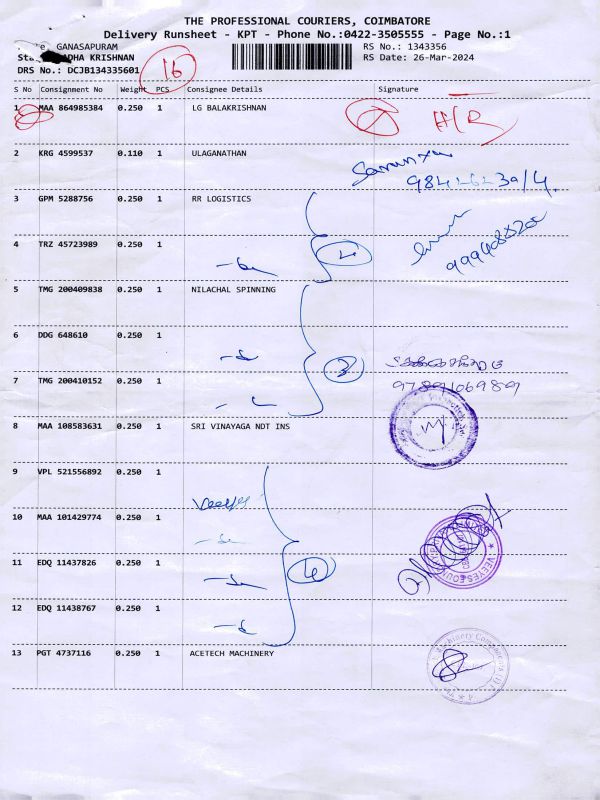 THE PROFESSIONAL COURIERS, COIMBATORE
Delivery Runsheet - KPT - Phone No.:0422-3505555 - Page No.:1
GANASAPURAM
RS No.: 1343356
KRISHNAN
RS Date: 26-Mar-2024
DRS No.: DCJB134335601
16
S No Consignment No Weight PCS Consignee Details Signature
1 MAA 864985384 0.250 1 LG BALAKRISHNAN
2 KRG 4599537 0.110 1 ULAGANATHAN
3 GPM 5288756 0.250 1 RR LOGISTICS
4 TRZ 45723989 0.250 1
5 TMG 200409838 0.250 1 NILACHAL SPINNING
6 DDG 648610 0.250 1
3
7 TMG 200410152 0.250 1
9789106989
8 MAA 108583631 0.250 1 SRI VINAYAGA NDT INS
9 VPL 521556892 0.250 1
10 MAA 101429774 0.250 1
11 EDQ 11437826 0.250 1
12 EDQ 11438767 0.250 1
13 PGT 4737116 0.250 1 ACETECH MACHINERY